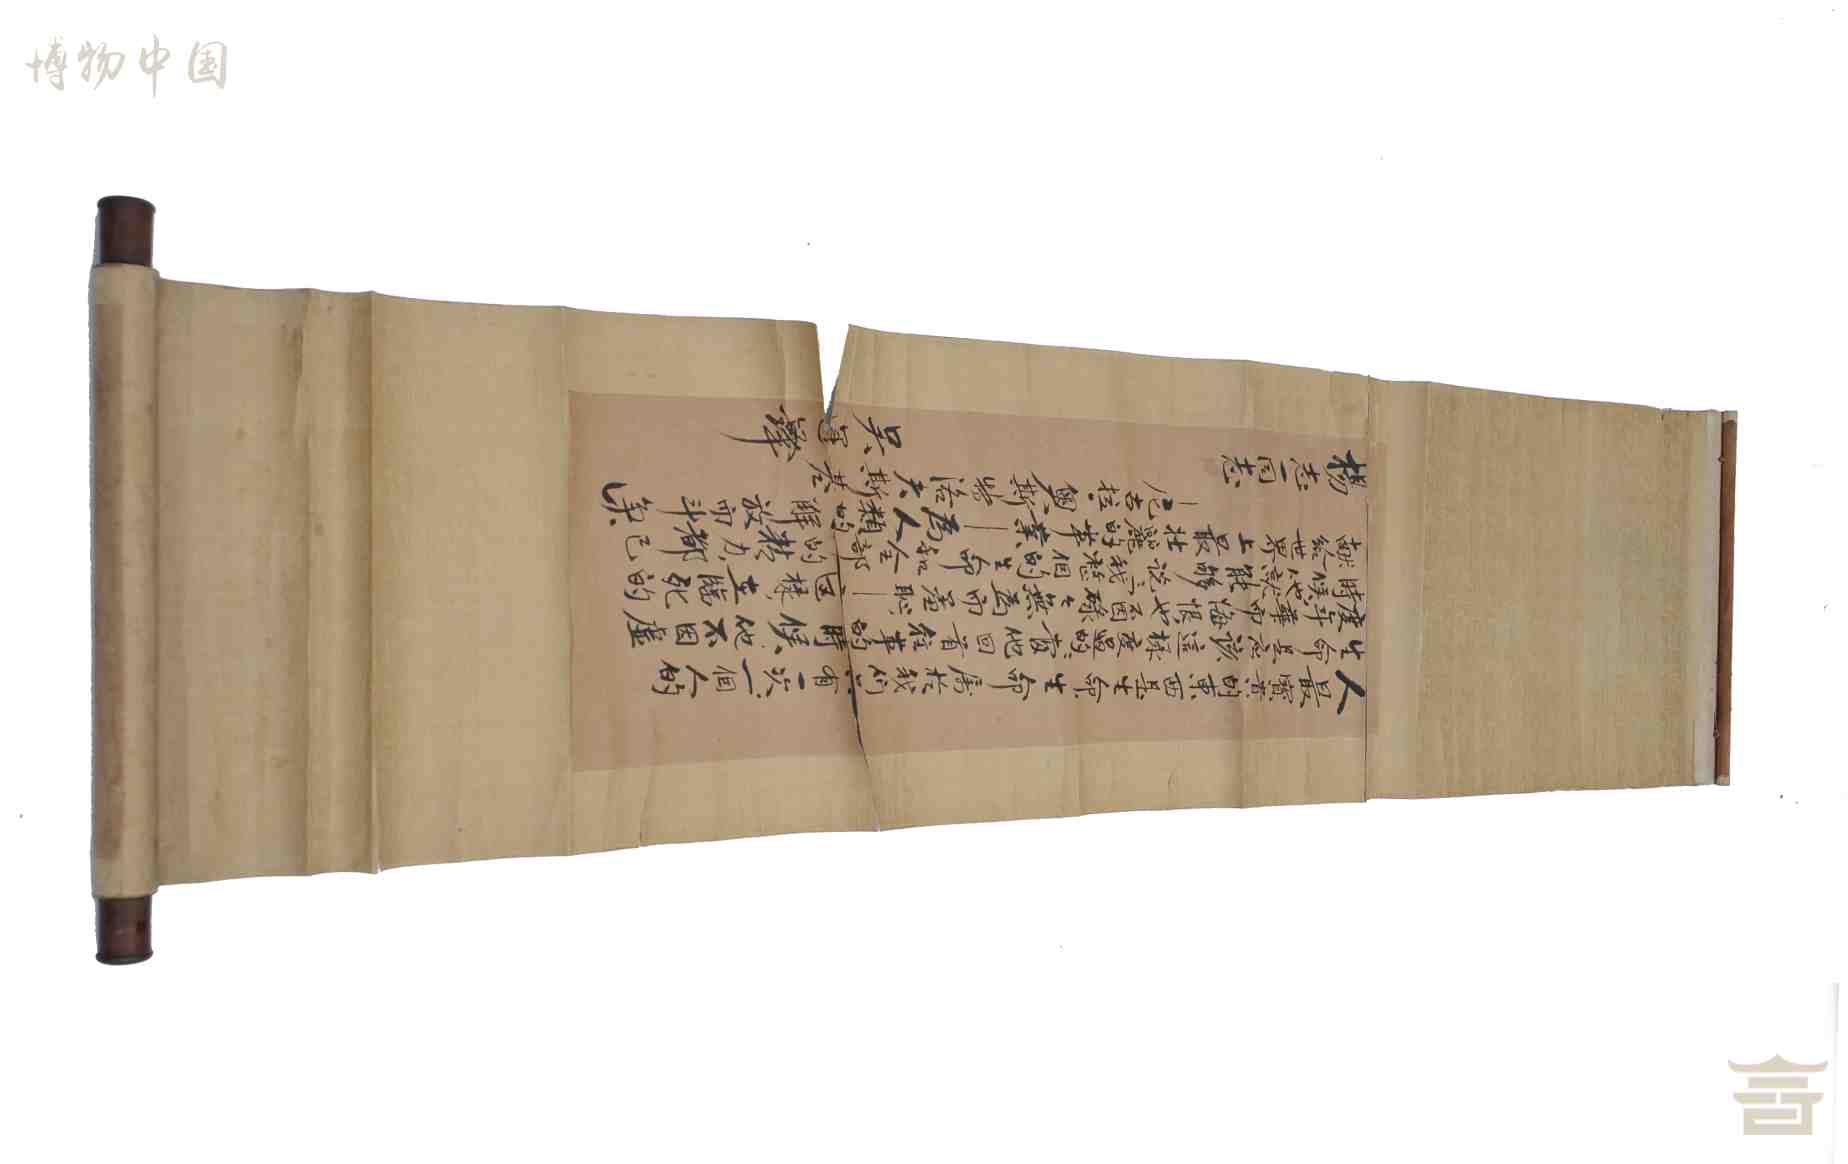 博物中国
楊志一同志
人最寶貴的東西是生命生命屬於我們只有一次一個人的
生命是應該這樣度過的當他回首往事的時候他不因虛
度年華而悔恨也不因碌碌無爲而羞恥—這樣在臨死的
時候他就能夠說我整個的生命和全部的精力都已
獻給世界上最壯麗的事業—為人類的解放而斗争
—尼古拉奧斯特洛夫斯基
吴运鐸